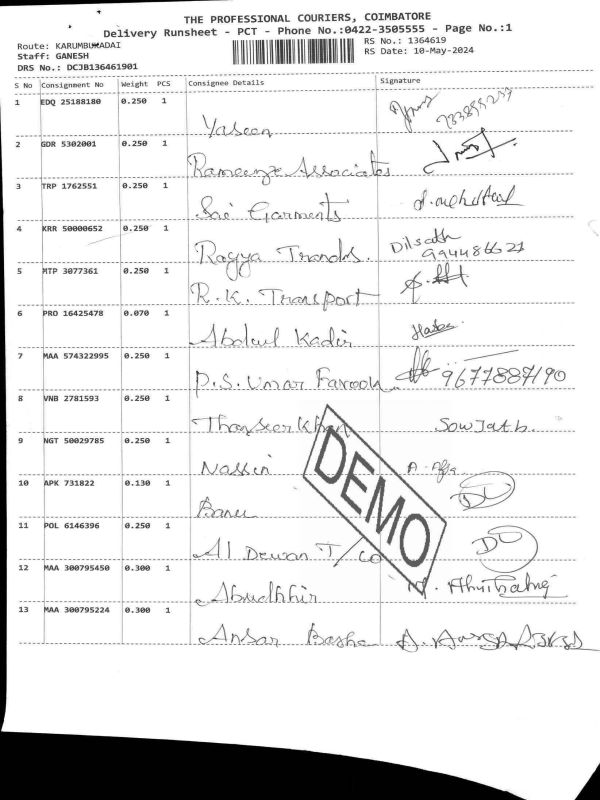 THE PROFESSIONAL COURIERS, COIMBATORE
Delivery Runsheet - PCT - Phone No.:0422-3505555 - Page No.:1
Route: KARUMBUKADAI
RS No.: 1364619
Staff: GANESH
RS Date: 10-May-2024
DRS No.: DCJB136461901
S No Consignment No Weight PCS Consignee Details Signature
1 EDQ 25188180 0.250 1
Yaseen
2 GDR 5302001 0.250 1
Associates
3 TRP 1762551 0.250 1
Sai Garments
4 KRR 50000652 0.250 1
Dilsath
Ragya
994486621
5 MTP 3077361 0.250 1
R.K. Transport
6 PRO 16425478 0.070 1
Abdul Kadir
7 MAA 574322995 0.250 1
P.S. Umar Farook 9677887190
8 VNB 2781593 0.250 1
Thanseer Khan Sowjath.
9 NGT 50029785 0.250 1
Nassin
10 APK 731822 0.130 1
Banu
11 POL 6146396 0.250 1
Al Dewan T/Co
12 MAA 300795450 0.300 1
13 MAA 300795224 0.300 1
Ansar Basha
DEMO